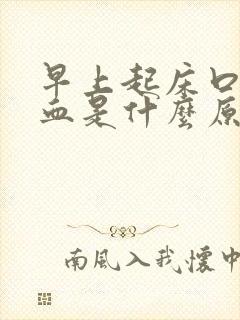 早上起床口
血是什麼原
南風入我懷中